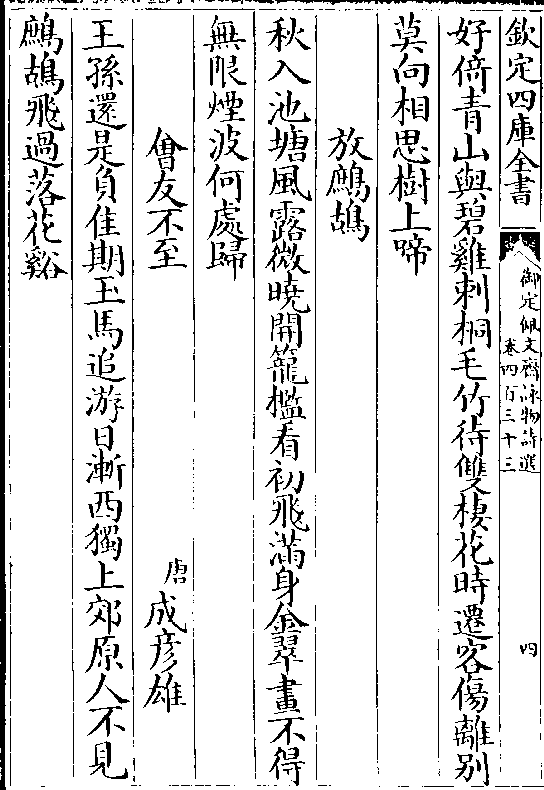 欽定四庫全書
御定佩文齋詠物詩選
卷四百三十三
四
好倚青山與碧雞刺桐毛竹待雙棲花時遷客傷離别
莫向相思樹上啼
放鷓鴣
秋入池塘風露微曉開籠檻看初飛滿身金翠畫不得
無限煙波何處歸
會友不至
唐
成彦雄
王孫還是負佳期玉馬追游日漸西獨上郊原人不見
鷓鴣飛過落花谿